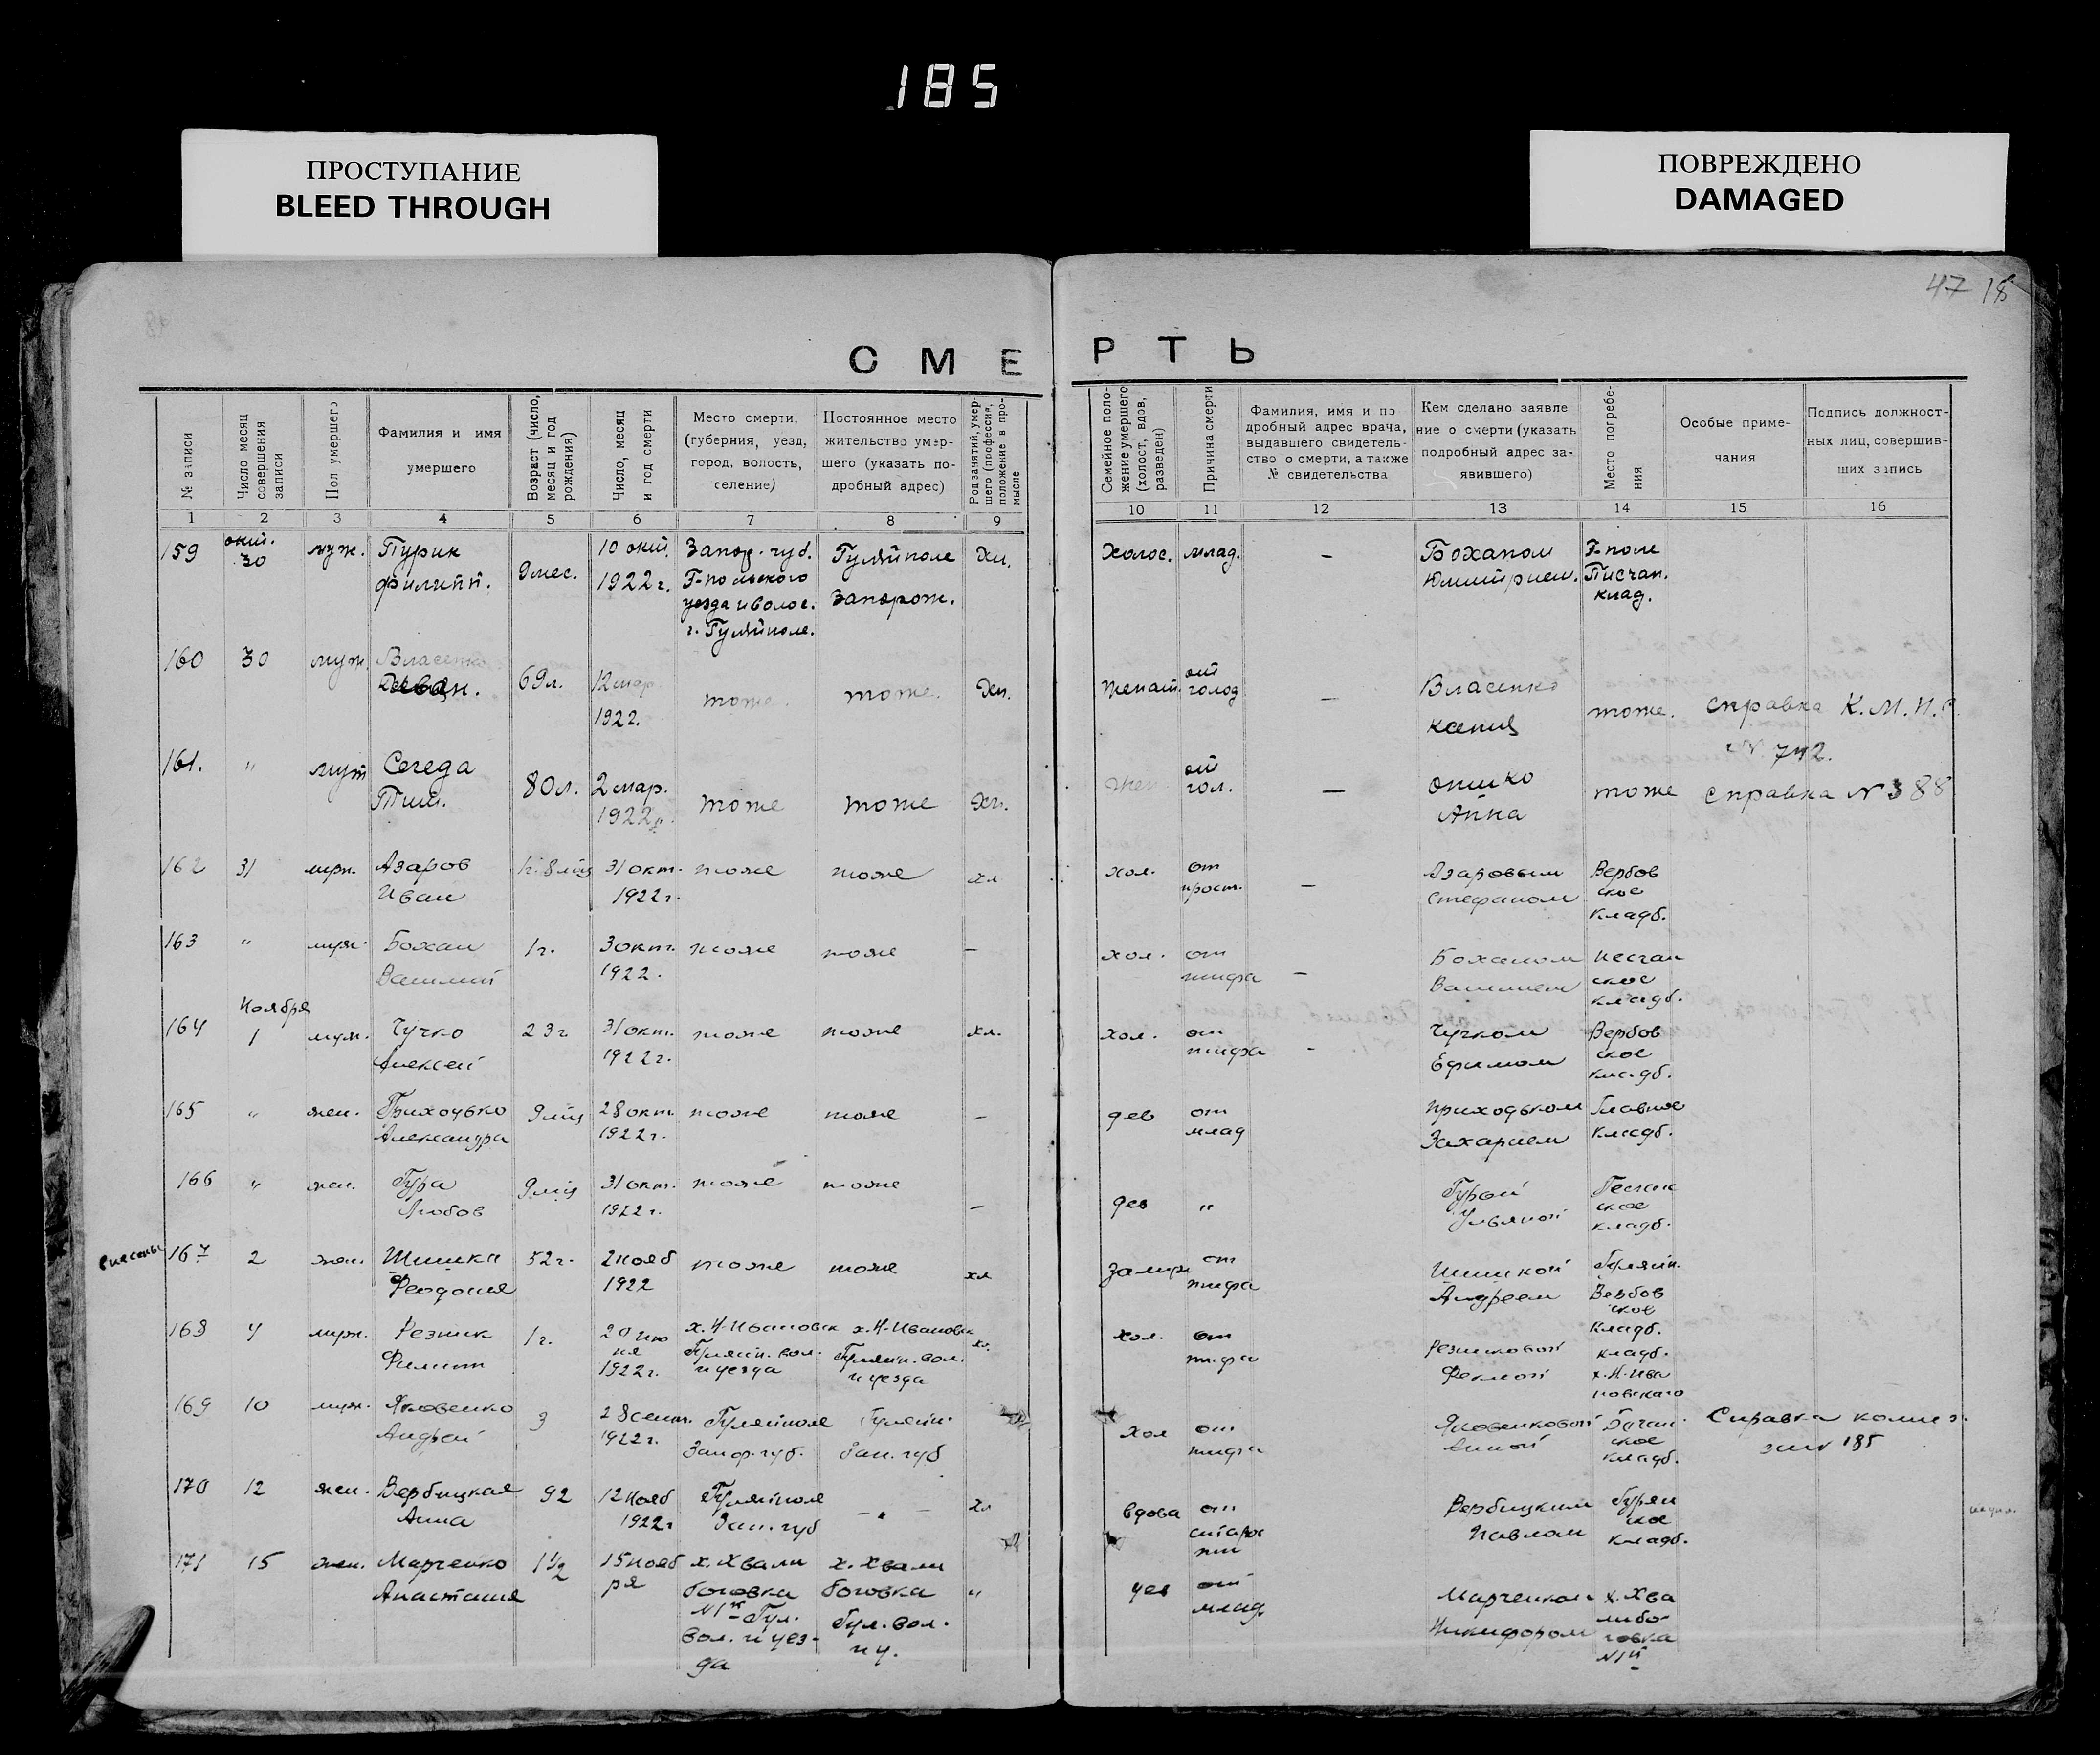 185
ПРОСТУПАНИЕ
BLEED THROUGH
ПОВРЕЖДЕНО
DAMAGED
47 18
СМЕРТЬ
№ записи
Число месяц совершения записи
Пол умершего
Фамилия и имя умершего
Возраст (число, месяц и год рождения)
Число, месяц и год смерти
Место смерти, (губерния, уезд, город, волость, селение)
Постоянное место жительство умершего (указать подробный адрес)
Род занятий, умершего (профессия, положение в промысле
Семейное положение умершего (холост, вдов, разведен)
Причина смерти
Фамилия, имя и подробный адрес врача, выдавшего свидетельство о смерти, а также № свидетельства
Кем сделано заявление о смерти (указать подробный адрес заявившего)
Место погребения
Особые примечания
Подпись должностных лиц, совершивших запись
1 2 3 4 5 6 7 8 9 10 11 12 13 14 15 16
159 окт. 30 муж. Пурик Филипп. 9 мес. 10 окт. 1922 г. Запор. губ. Г-польского уезда и волос. г. Гуляйполе. Гуляйполе Запорож. Хл. Холос. млад. – Боханом Дмитрием. Г-поле Писчан. клад.
160 30 муж. Власенко 69 л. 12 мар. 1922. тоже. тоже. Хл. женат. от голод – Власенко тоже. справка К.М.П. № 742.
161. " муж Сегеда Тим. 80 л. 2 мар. 1922 г. тоже тоже Хл. Жен от гол. – Анна тоже справка № 388
162 31 муж. Азаров Иван 1 г. 8 м-ц 31 окт. 1922 г. тоже тоже хл хол. от прост. – Азаровым Стефаном Вербовское кладб.
163 " муж. Бохан Василий 1 г. 3 окт. 1922. тоже тоже – хол. от тифа – Боханом Василием Песчанское кладб.
Ноября
164 1 муж. Чучко Алексей 23 г 31 окт. 1922 г. тоже тоже хл. хол. от тифа - Чучком Ефимом Вербовское кладб.
165 " жен. Приходько Александра 9 м-ц 28 окт 1922 г. тоже тоже – дев от млад Приходьком Захарием Главное кладб.
166 " жен. Гура Любов 9 м-ц 31 окт. 1922 г. тоже тоже – дев " Гурой Ульяной Песчанское кладб.
167 2 жен. Шишка Феодосия 52 г. 2 нояб 1922 тоже тоже хл замуж от тифа Шишкой Андреем Гуляйп. Вербовское кладб.
168 4 муж. Резник Филипп 1 г. 20 июня 1922 г. х. Н-Ивановк Гуляйп. вол. и уезда х. Н-Ивановк Гуляйп. вол. и уезда хл. хол. от тифа Резниковой Феклой кладб. х. Н-Ивановского
169 10 муж. Яковенко Андрей 3 28 сент. 1922 г. Гуляйполе Запор. губ. Гуляйп. Зап. губ хол от тифа Яковенковой Анной кладб. Справка 185
170 12 жен. Вербицкая Анна 92 12 Нояб 1922 г Гуляйполе Зап. губ – " – хл вдова от старости Вербицким Павлом кладб.
171 15 жен. Марченко Анастасия 1 1/2 15 ноября х. Хвалибоговка № 1й Гул. вол. и уезда х. Хвалибоговка Гул. вол. и у. " дев от млад Марченком Никифором х. Хвалибоговка № 1й